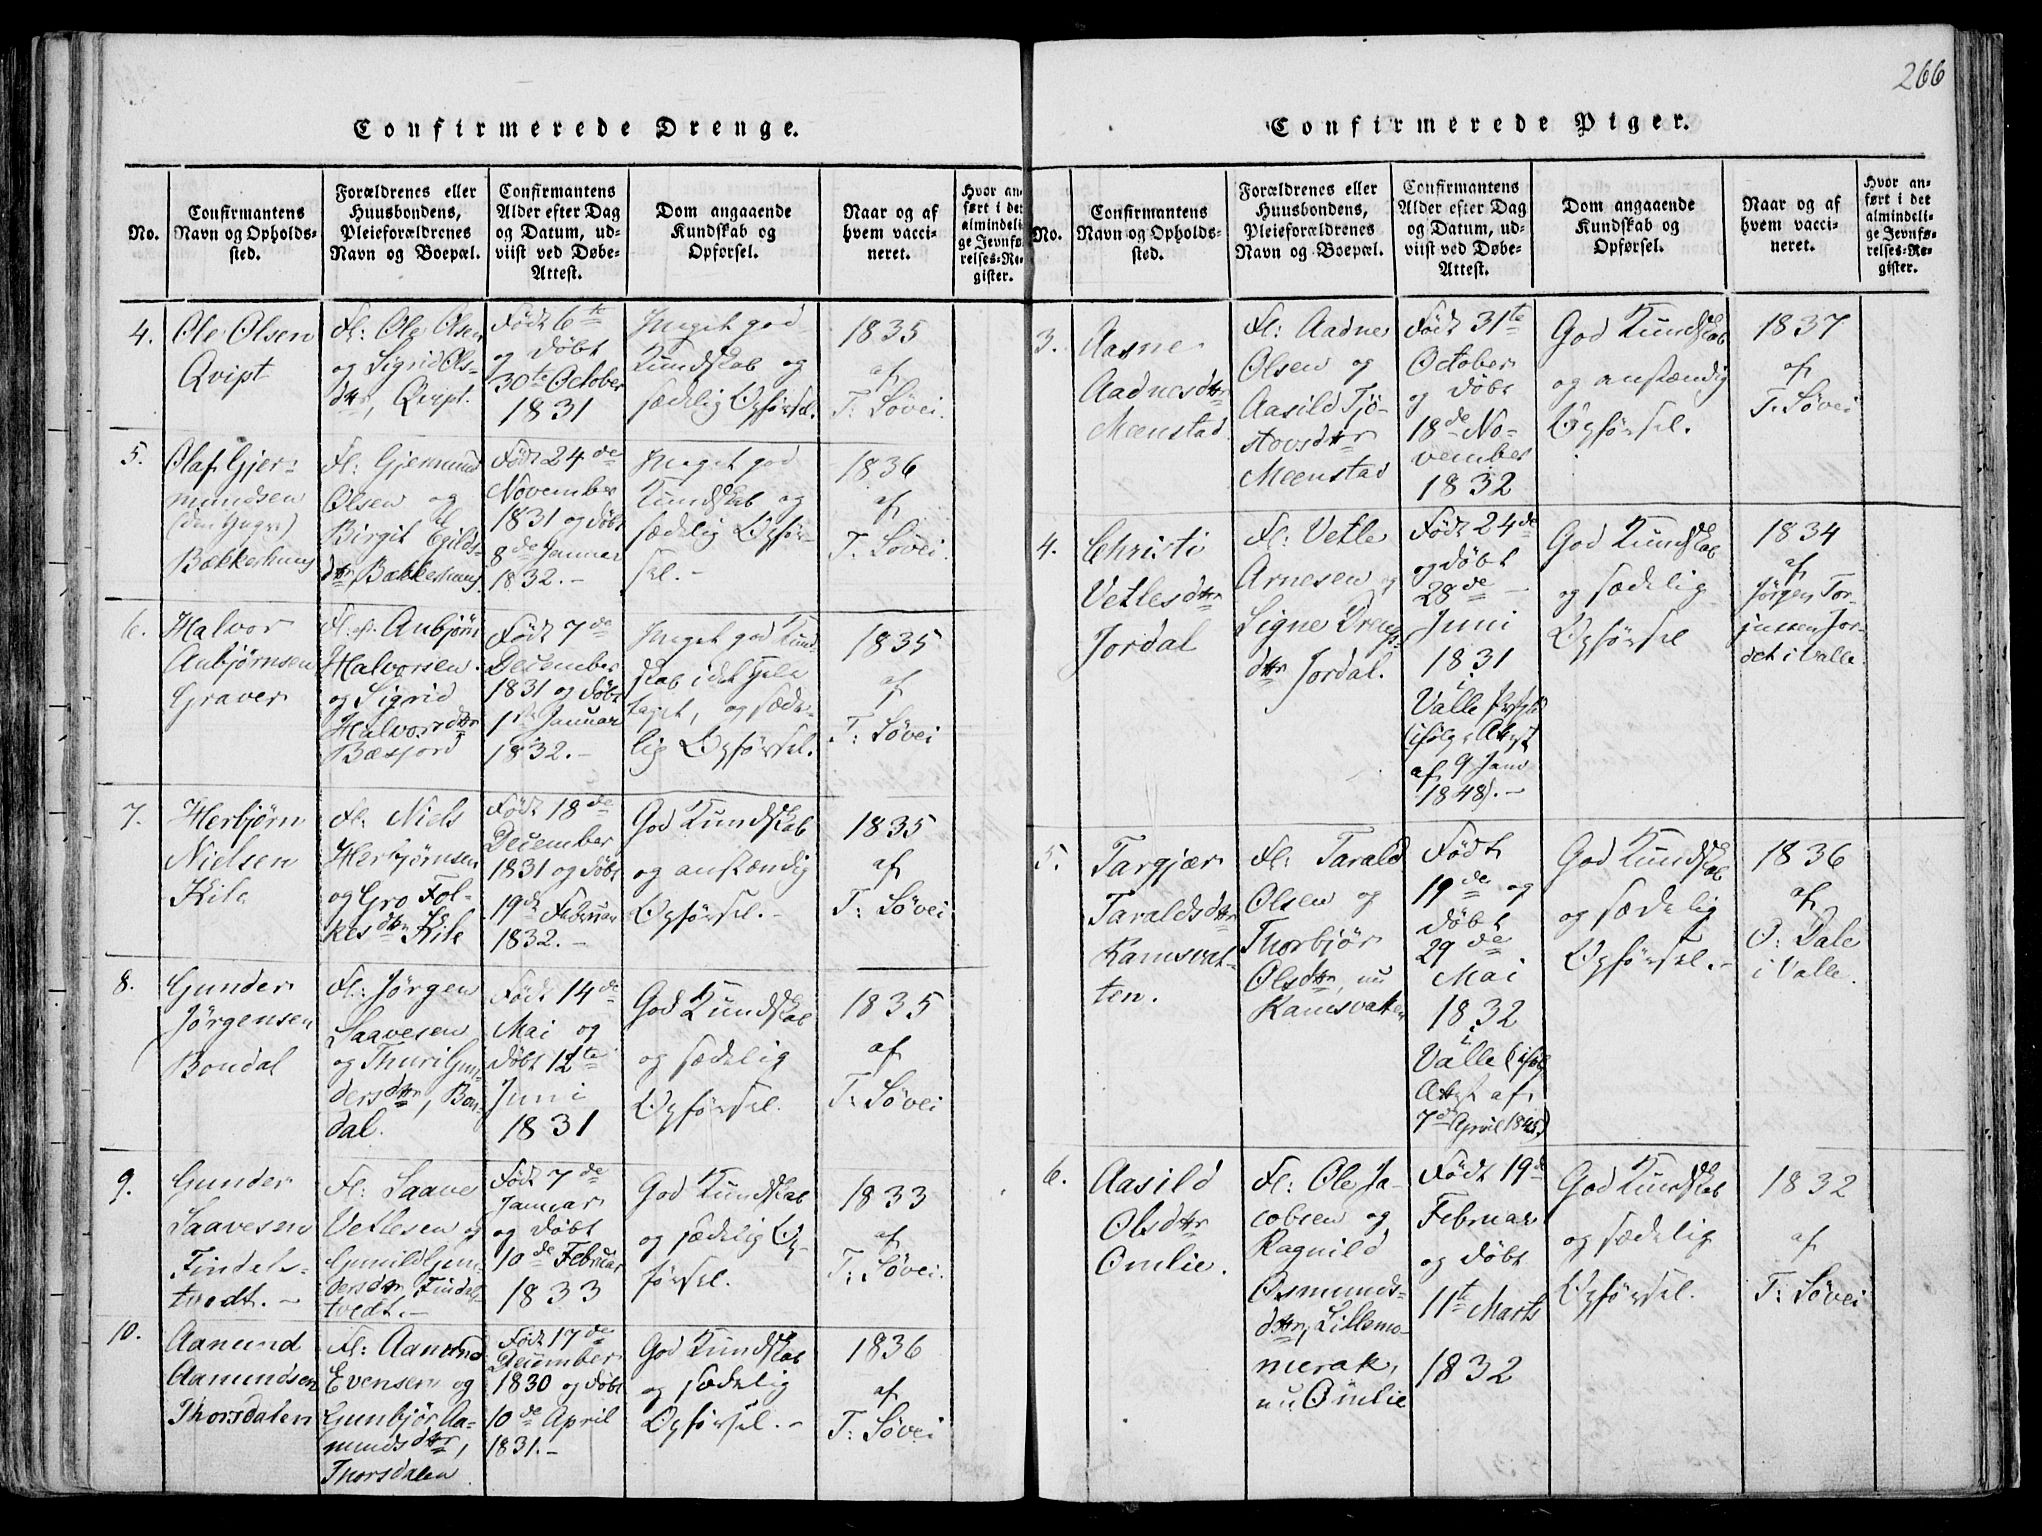 266
Confirmerede Drenge.
No.
Confirmantens
Navn og Opholds-
sted.
Forældrenes eller
Huusbondens,
Pleieforældrenes
Navn og Boepæl.
Confirmantens
Alder efter Dag
og Datum, ud-
viist ved Døbe-
Attest.
Dom angaaende
Kundskab og
Opførsel.
Naar og af
hvem vacci-
neret.
Hvor an-
ført i det
almindeli-
ge Jevnfø-
relses-Re-
gister.
4.
Ole Olsen
Qvipt
Fl: Ole Olsen
og Sigrid Ols-
dtr, Qvipt.
Født 6te
og døbt
30te October
1831
Meget god
Kundskab og
sædelig Opførsel.
1835
af
T: Søvei.
5.
Olaf Gjer-
mundsen
(den Yngre)
Bækkehuus
Fl: Gjermund
Olsen og
Birgit Egilds-
dtr Bækkehuus
Født 24de
November
1831 og døbt
8de Januar
1832.-
Meget god
Kundskab og
sædelig Opfør-
sel.-
1836
af
T. Søvei
6.
Halvor
Anbjørnsen
Graver
Fl. Anbjørn
Halvorsen
og Sigrid
Halvorsdtr
Bæsjord
Født 7de
December
1831 og døbt
1ste Januar
1832.-
Meget god Kund-
skab i det Hele
taget, og sæde-
lig Opførsel.
1835
af
T: Søvei
7.
Herbjørn
Nielsen
Kile
Fl: Niels
Herbjørnsen
og Gro Fol-
kesdtr Kile
Født 18de
December
1831 og døbt
19de Februar
1832.-
God Kundskab
og anstændig
Opførsel.-
1835
af
T: Søvei
8.
Gunder
Jørgensen
Bondal
Fl: Jørgen
Saavesen
og Thuri Gun-
dersdtr, Bon-
dal.
Født 14de
Mai og
døbt 12te
Juni
1831
God Kundskab
og sædelig
Opførsel.
1835
af
T: Søvei
9.
Gunder
Saavesen
Findels-
tvedt.-
Fl: Saave
Vetlesen og
Gunild Gun-
dersdtr Findels-
tvedt.-
Født 7de
Januar
og døbt
10de Februar
1833
God Kundskab
og sædelig Op-
førsel.
1833
af
T: Søvei.
10.
Aamund
Aamundsen
Thorsdalen
Fl: Aamund
Evensen og
Gunbjør Aa-
mundsdtr,
Thorsdalen
Født 17de
December
1830 og døbt
10de April
1831.-
God Kundskab
og sædelig
Opførsel.-
1836
af
T: Søvei
Confirmerede Piger.
No.
Confirmantens
Navn og Opholds-
sted.
Forældrenes eller
Huusbondens,
Pleieforældrenes
Navn og Boepæl.
Confirmantens
Alder efter Dag
og Datum, ud-
viist ved Døbe-
Attest.
Dom angaaende
Kundskab og
Opførsel.
Naar og af
hvem vacci-
neret.
Hvor an-
ført i det
almindeli-
ge Jevnfø-
relses-Re-
gister.
3.
Aasne
Aadnesdtr
Meenstad
Fl: Aadne
Olsen og
Aasild Tjø-
stovsdtr
Meenstad
Født 31te
October
og døbt
18de No-
vember
1832
God Kundskab
og anstændig
Opførsel.
1837
af
T. Søvei
4.
Christi
Vetlesdtr
Jordal
Fl: Vetle
Arnesen og
Signe
dtr Jordal.
Født 24de
og døbt
28de
Juni
1831
i
Valle
(ifølge Attest
af 9 Janu
1848).-
God Kundskab
og sædelig
Opførsel
1834
af
Jørgen Tor-
jussen Jor-
det i Valle
5.
Targjær
Taraldsdtr
Kamsvat-
ten.
Fl: Tarald
Olsen og
Thorbjør
Olsdtr, nu
Kamsvatten
Født
19de og
døbt
29de
Mai
1832
i
Valle (ifølg
Attest af
7de April 1845)
God Kundskab
og sædelig
Opførsel.-
1836
af
O: Dale
i Valle.
6.
Aasild
Olsdtr
Omlie.
Fl: Ole Ja-
cobsen og
Ragnild
Osmunds-
dtr, Lillemo-
merak,
nu Omlie
Født 19de
Februar
og døbt
11te Marts
1832
God Kundskab
og sædelig
Opførsel.
1832
af
T: Søvei